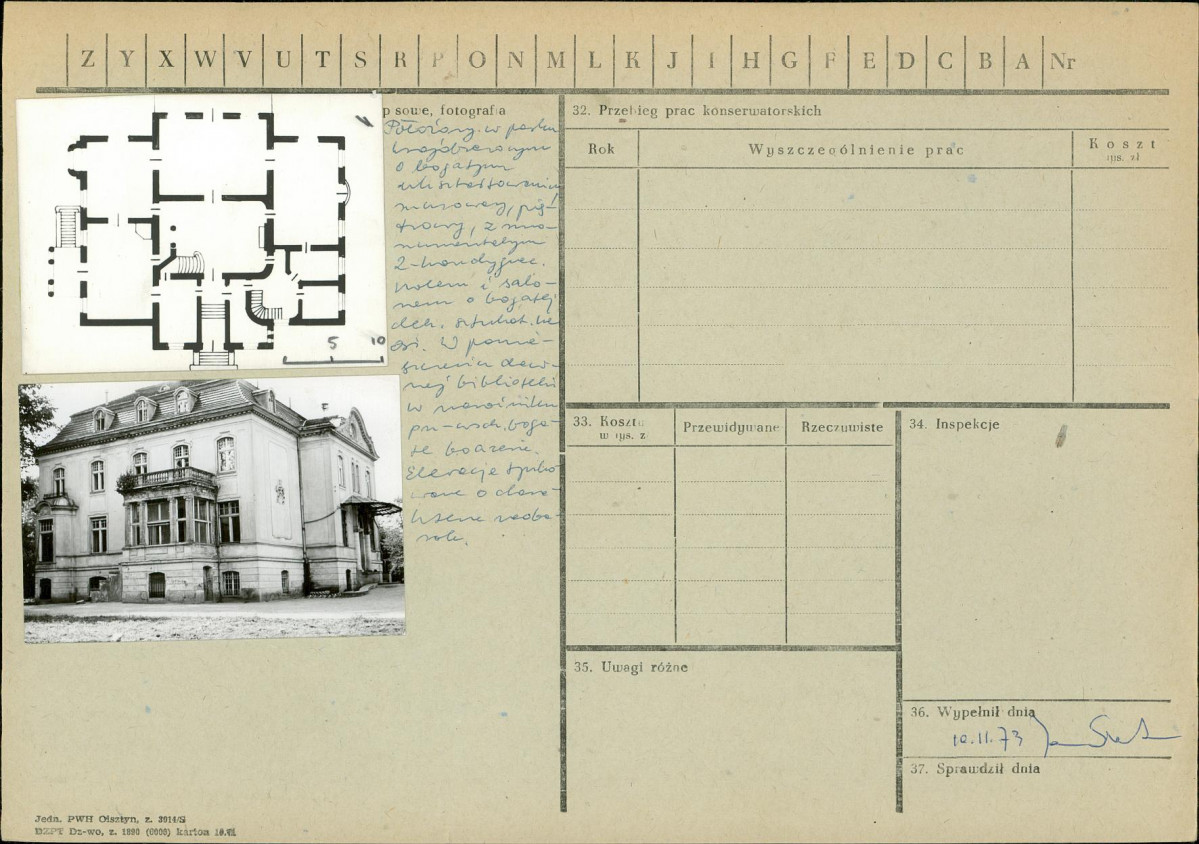 Z Y X W V U T S R P O N M Ł K J I H G F E D C B A Nr
p sowe, fotografia
Położony w parku
krajobrazowym
o bogatym
ukształtowaniu,
murowany, pię-
trowy, z mo-
numentalnym
2-kondygnac.
holem i salo-
nem o bogatej
dek. sztukat.
W pomie-
szczeniu daw-
nej biblioteki
w narożniku
pn-wsch. boga-
te boazerie.
Elewacje tynko-
wane o chara-
kterze neoba-
roku.
5 10
32. Przebieg prac konserwatorskich
Rok
Wyszczególnienie prac
Koszt
tys. zł
33. Koszty
w tys. z
Przewidywane
Rzeczywiste
34. Inspekcje
35. Uwagi różne
36. Wypełnił dnia
10.11.73
37. Sprawdził dnia
Jedn. PWH Olsztyn, z. 3914/S
DZPT Dz-wo, z. 1890 (0000) karton